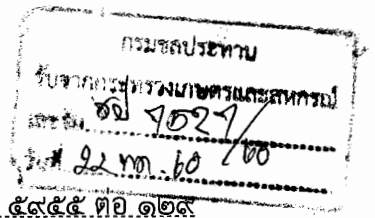 กรมชลประทาน
รับจากกระทรวงเกษตรและสหกรณ์
เลขรับ ชป 7521/60
วันที่ 22 พ.ค. 60
๕๙๕๕ ต่อ ๑๒๙